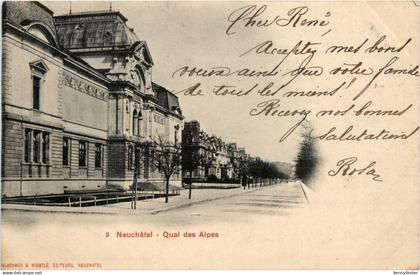 Cher René,
Acceptez mes bons
vœux ainsi que votre famille
de tous les miens!
Recevez nos bonnes
salutations
Rosa
3 Neuchâtel - Quai des Alpes
DELACHAUX & NIESTLÉ, ÉDITEURS, NEUCHATEL